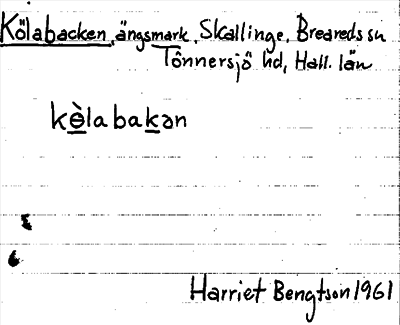 Kölabacken, ängsmark, Skallinge, Breareds sn
Tönnersjö hd, Hall. län
kɵ̀labakən
Harriet Bengtson 1961